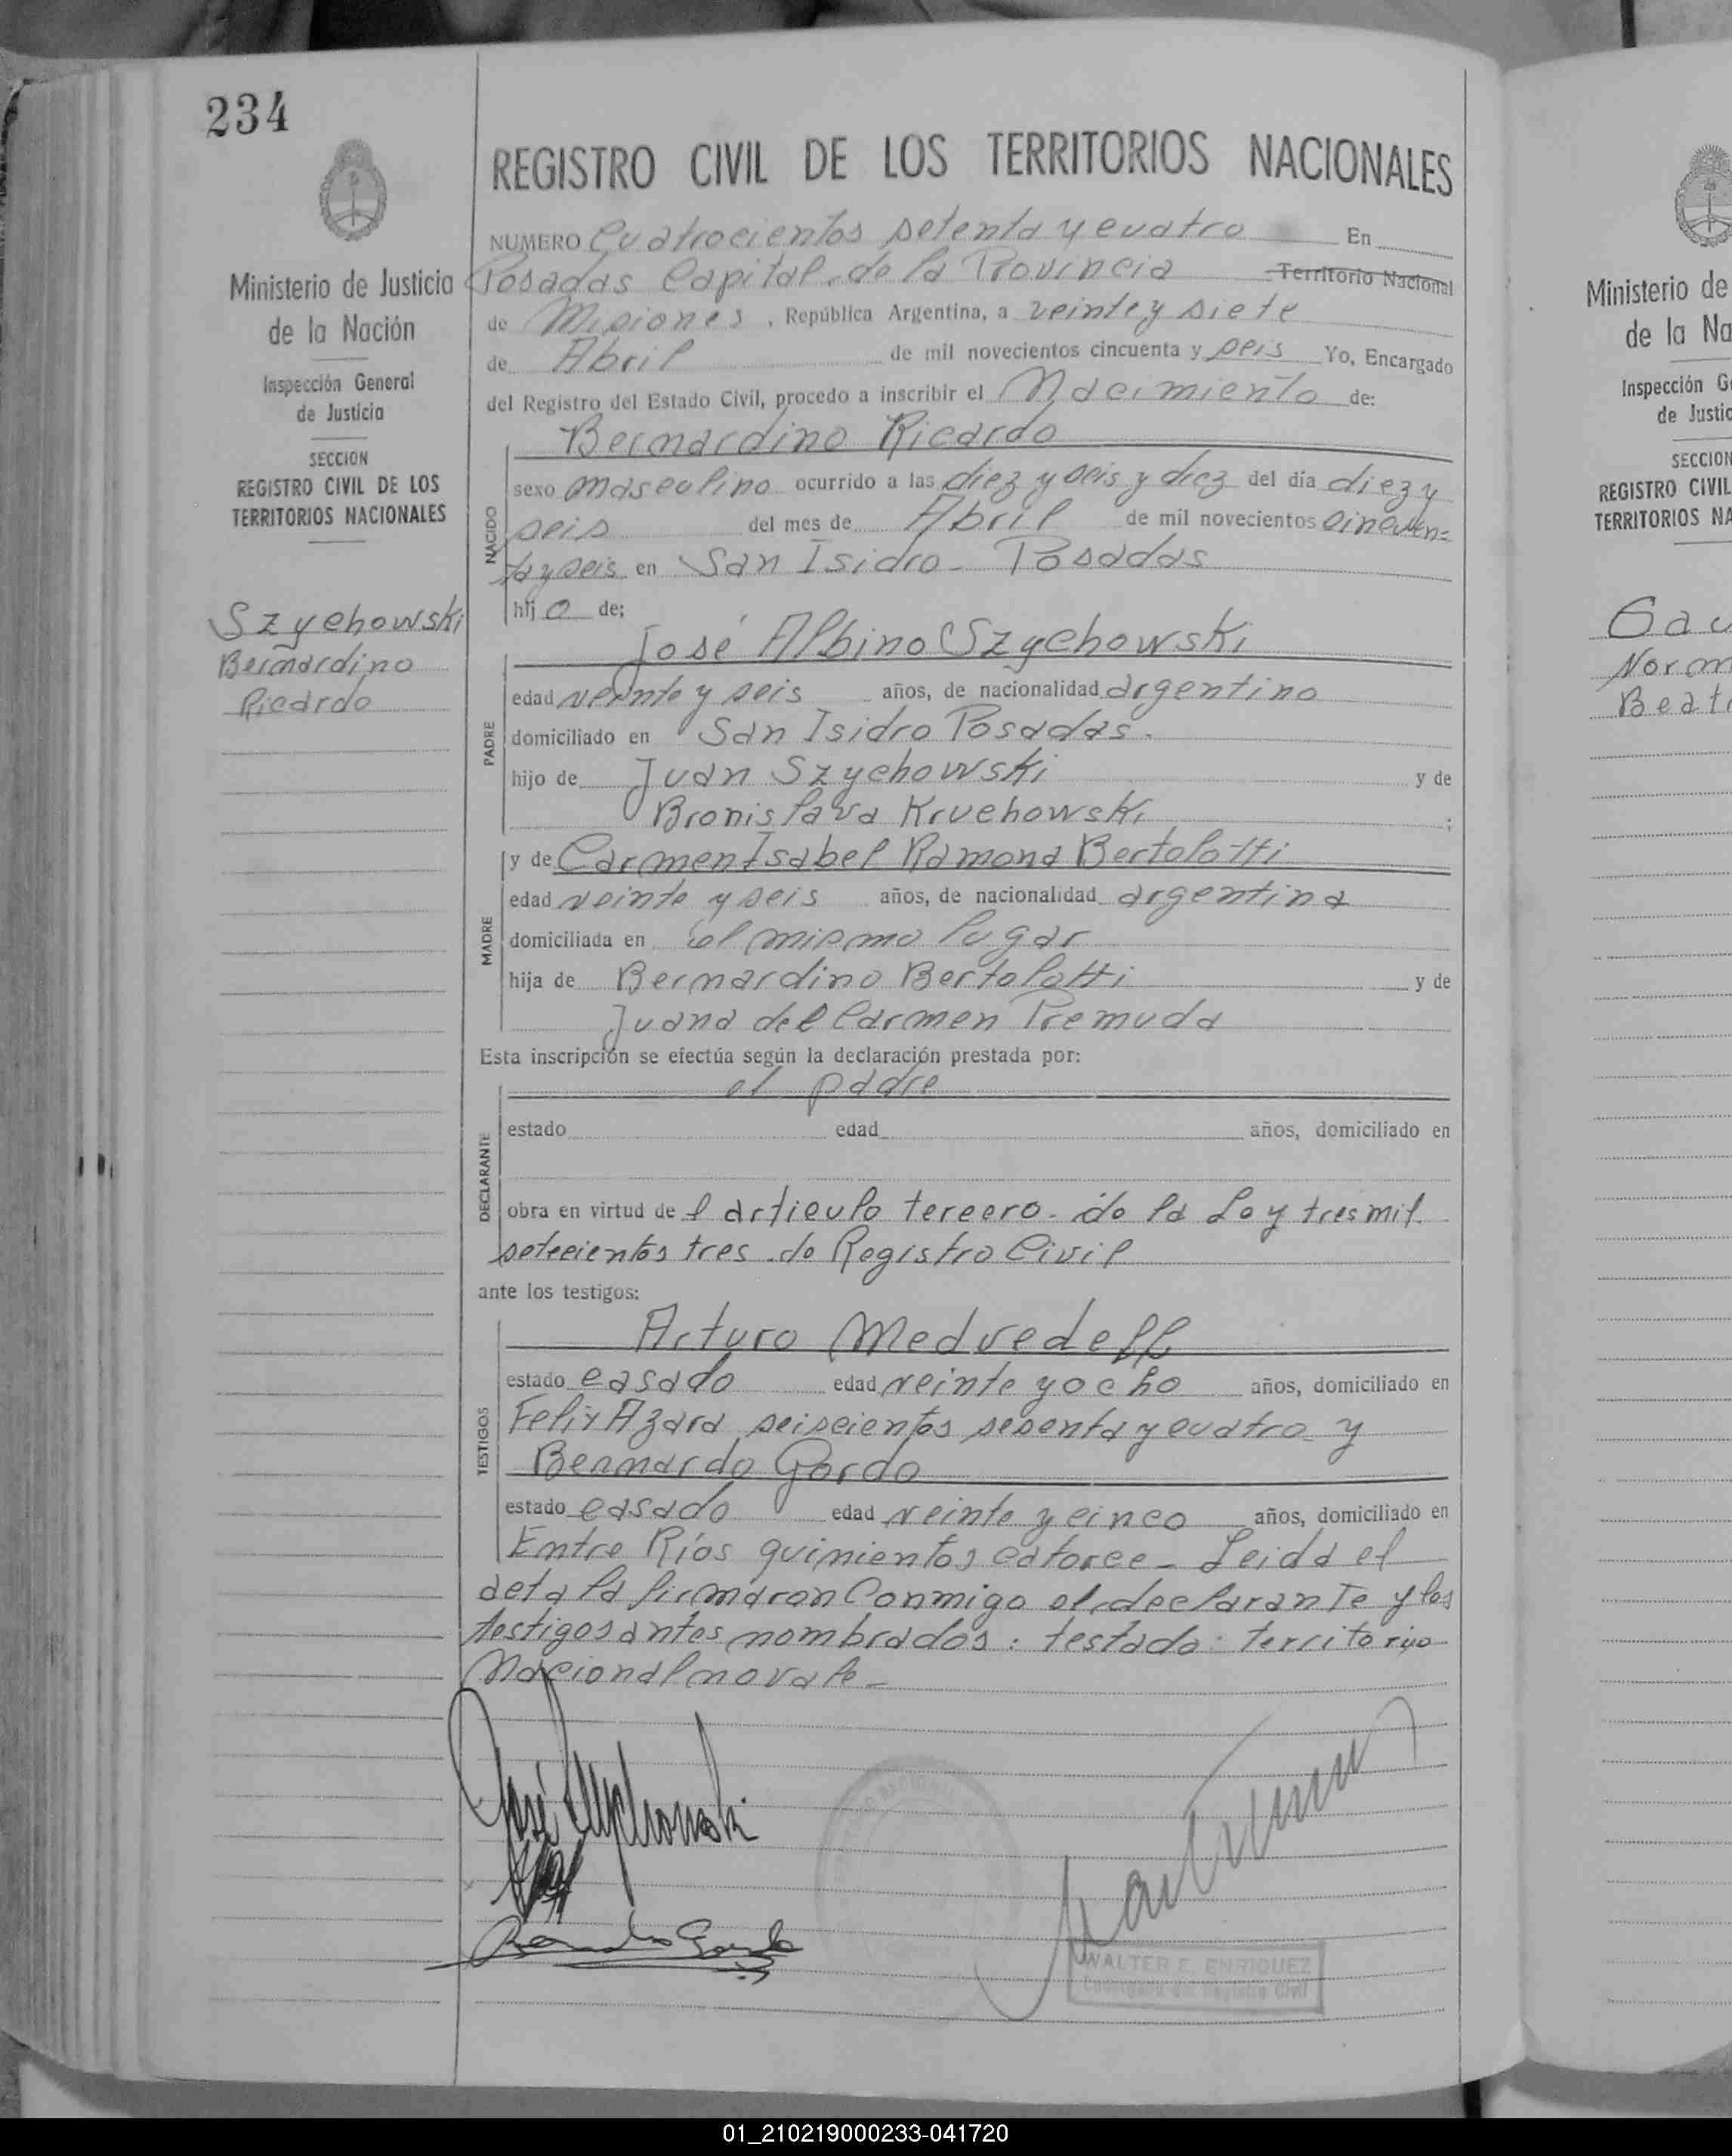 234
REGISTRO CIVIL DE LOS TERRITORIOS NACIONALES
Ministerio de Justicia
de la Nación
Inspección General
de Justicia
SECCION
REGISTRO CIVIL DE LOS
TERRITORIOS NACIONALES
Szychowski
Bernardino
Ricardo
NUMERO Cuatrocientos setenta y cuatro En
Posadas Capital de la Provincia Territorio Nacional
de Misiones, República Argentina, a veinte y siete
de Abril de mil novecientos cincuenta y seis Yo, Encargado
del Registro del Estado Civil, procedo a inscribir el Nacimiento de:
Bernardino Ricardo
NACIDO
sexo masculino ocurrido a las diez y seis y diez del día diez y
seis del mes de Abril de mil novecientos cincuen=
ta y seis en San Isidro - Posadas
hijo de;
José Albino Szychowski
PADRE
edad veinte y seis años, de nacionalidad argentino
domiciliado en San Isidro Posadas.
hijo de Juan Szychowski y de
Bronislava Kruchowski ;
y de Carmen Isabel Ramona Bertolotti
MADRE
edad veinte y seis años, de nacionalidad argentina
domiciliada en el mismo lugar
hija de Bernardino Bertolotti y de
Juana del Carmen Premuda
Esta inscripción se efectúa según la declaración prestada por:
el padre
DECLARANTE
estado edad años, domiciliado en
obra en virtud de l articulo tercero. de la Ley tres mil
setecientos tres de Registro Civil
ante los testigos:
Arturo Medvedeff
TESTIGOS
estado casado edad veinte y ocho años, domiciliado en
Felix Azara seiscientos sesenta y cuatro y
Bernardo Gordo
estado casado edad veinte y cinco años, domiciliado en
Entre Ríos quinientos catorce - Leida el
acta la firmaron Conmigo el declarante y los
testigos antes nombrados: testado: territorio
Nacional no vale -
José Szychowski
Bernardo Gordo
WALTER E. ENRIQUEZ
Encargado del Registro Civil
Ministerio de
de la Na
Inspección G
de Justic
SECCION
REGISTRO CIVIL
TERRITORIOS NA
Gau
Norm
Beat
01_210219000233-041720